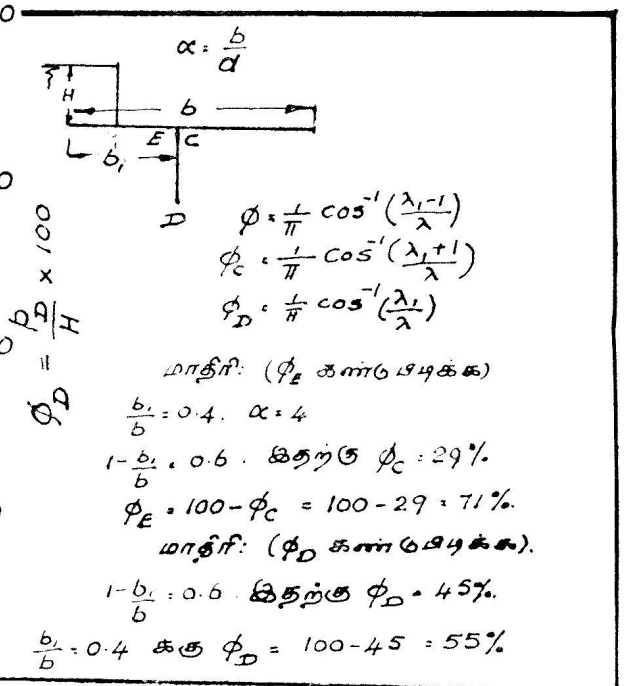 α = b/d
H
b
E C
b₁
D
φ = 1/π cos⁻¹((λ₁-1)/λ)
φ_C = 1/π cos⁻¹((λ₁+1)/λ)
φ_D = 1/π cos⁻¹(λ₁/λ)
φ_D = p_D/H × 100
மாதிரி: (φ_E கண்டுபிடிக்க)
b₁/b = 0.4. α = 4
1-b₁/b = 0.6. இதற்கு φ_C = 29%.
φ_E = 100-φ_C = 100-29 = 71%.
மாதிரி: (φ_D கண்டுபிடிக்க).
1-b₁/b = 0.6 இதற்கு φ_D = 45%.
b₁/b = 0.4 க்கு φ_D = 100-45 = 55%